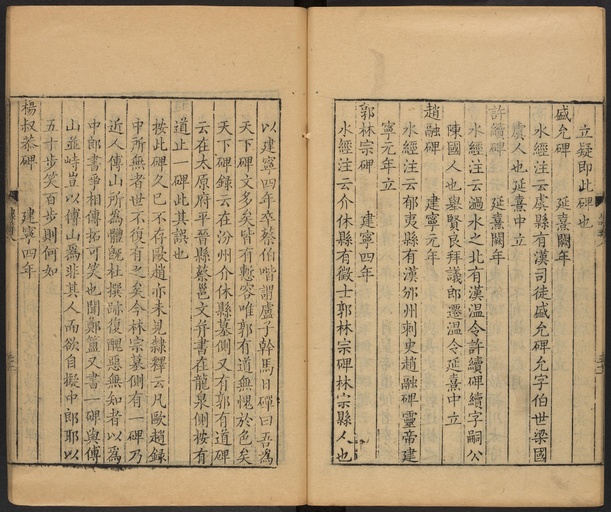 立疑即此碑也
戚允碑　　延熹闕年
水經注云虞縣有漢司徒戚允碑允字伯世梁國
虞人也延熹中立
許續碑　　延熹闕年
水經注云過水之北有漢溫令許續碑續字嗣公
陳國人也舉賢良拜議郎遷溫令延熹中立
趙融碑　　建寧元年
水經注云郁夷縣有漢邠州刺史趙融碑靈帝建
寧元年立
郭林宗碑　　建寧四年
水經注云介休縣有徵士郭林宗碑林宗縣人也
以建寧四年卒蔡伯喈謂盧子幹馬日磾曰吾為
天下碑文多矣皆有慙容唯郭有道無愧於色矣
天下碑錄云在汾州介休縣墓側又有郭有道碑
云在太原府平晉縣蔡邕文并書在龍泉側按有
道止一碑此其誤也
按此碑久已不存歐趙亦未見隸釋云凡歐趙錄
中所無者世不復有之矣今林宗墓側有一碑乃
近人傅山所為體旣杜撰跡復醜惡無知者以為
中郎書爭相傳拓可笑也聞鄭簠又書一碑與傅
山並峙豈以傅山為非其人而欲自擬中郎耶以
五十步笑百步則何如
楊叔恭碑　　建寧四年